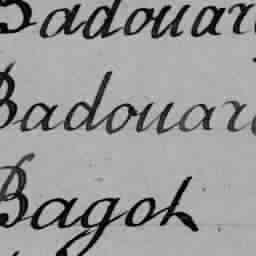 Badouar
Badouar
Bagot